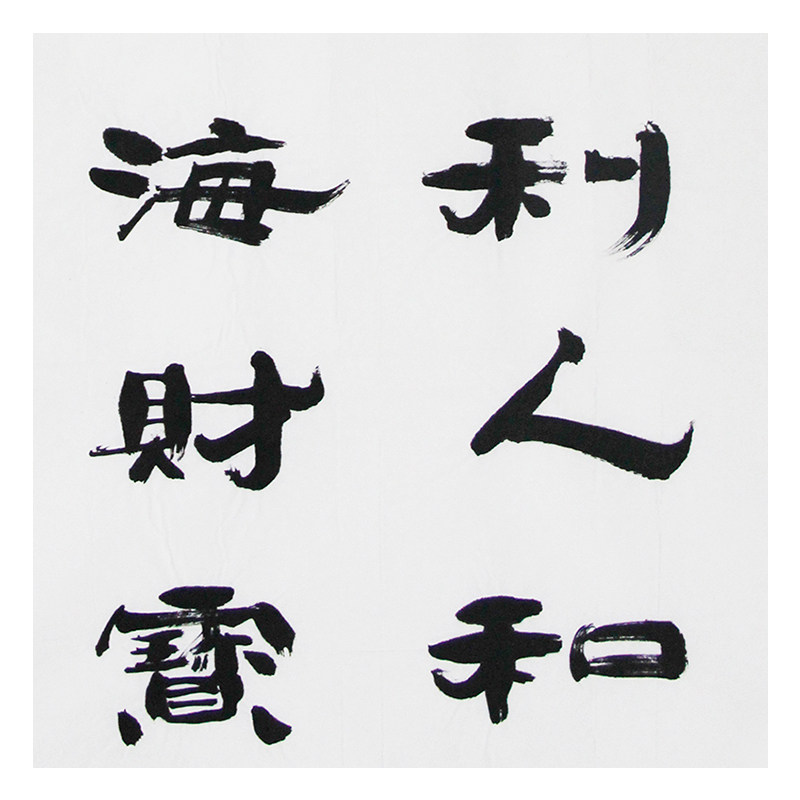 利人和
海財寶